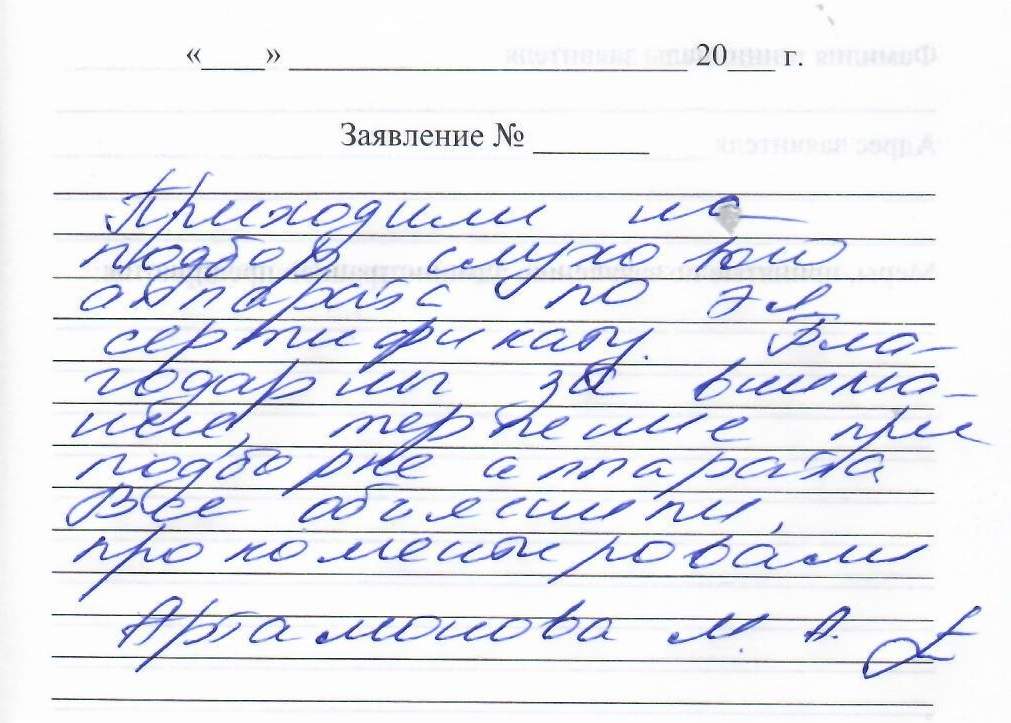 «____» _________________________ 20___ г.
Заявление № _______
Приходили на
подбор слухового
аппарата по эл.
сертификату. Бла-
годарны за внима-
ние, терпение при
подборке аппарата
Все объяснили,
прокоментировали
Артамонова М. А.